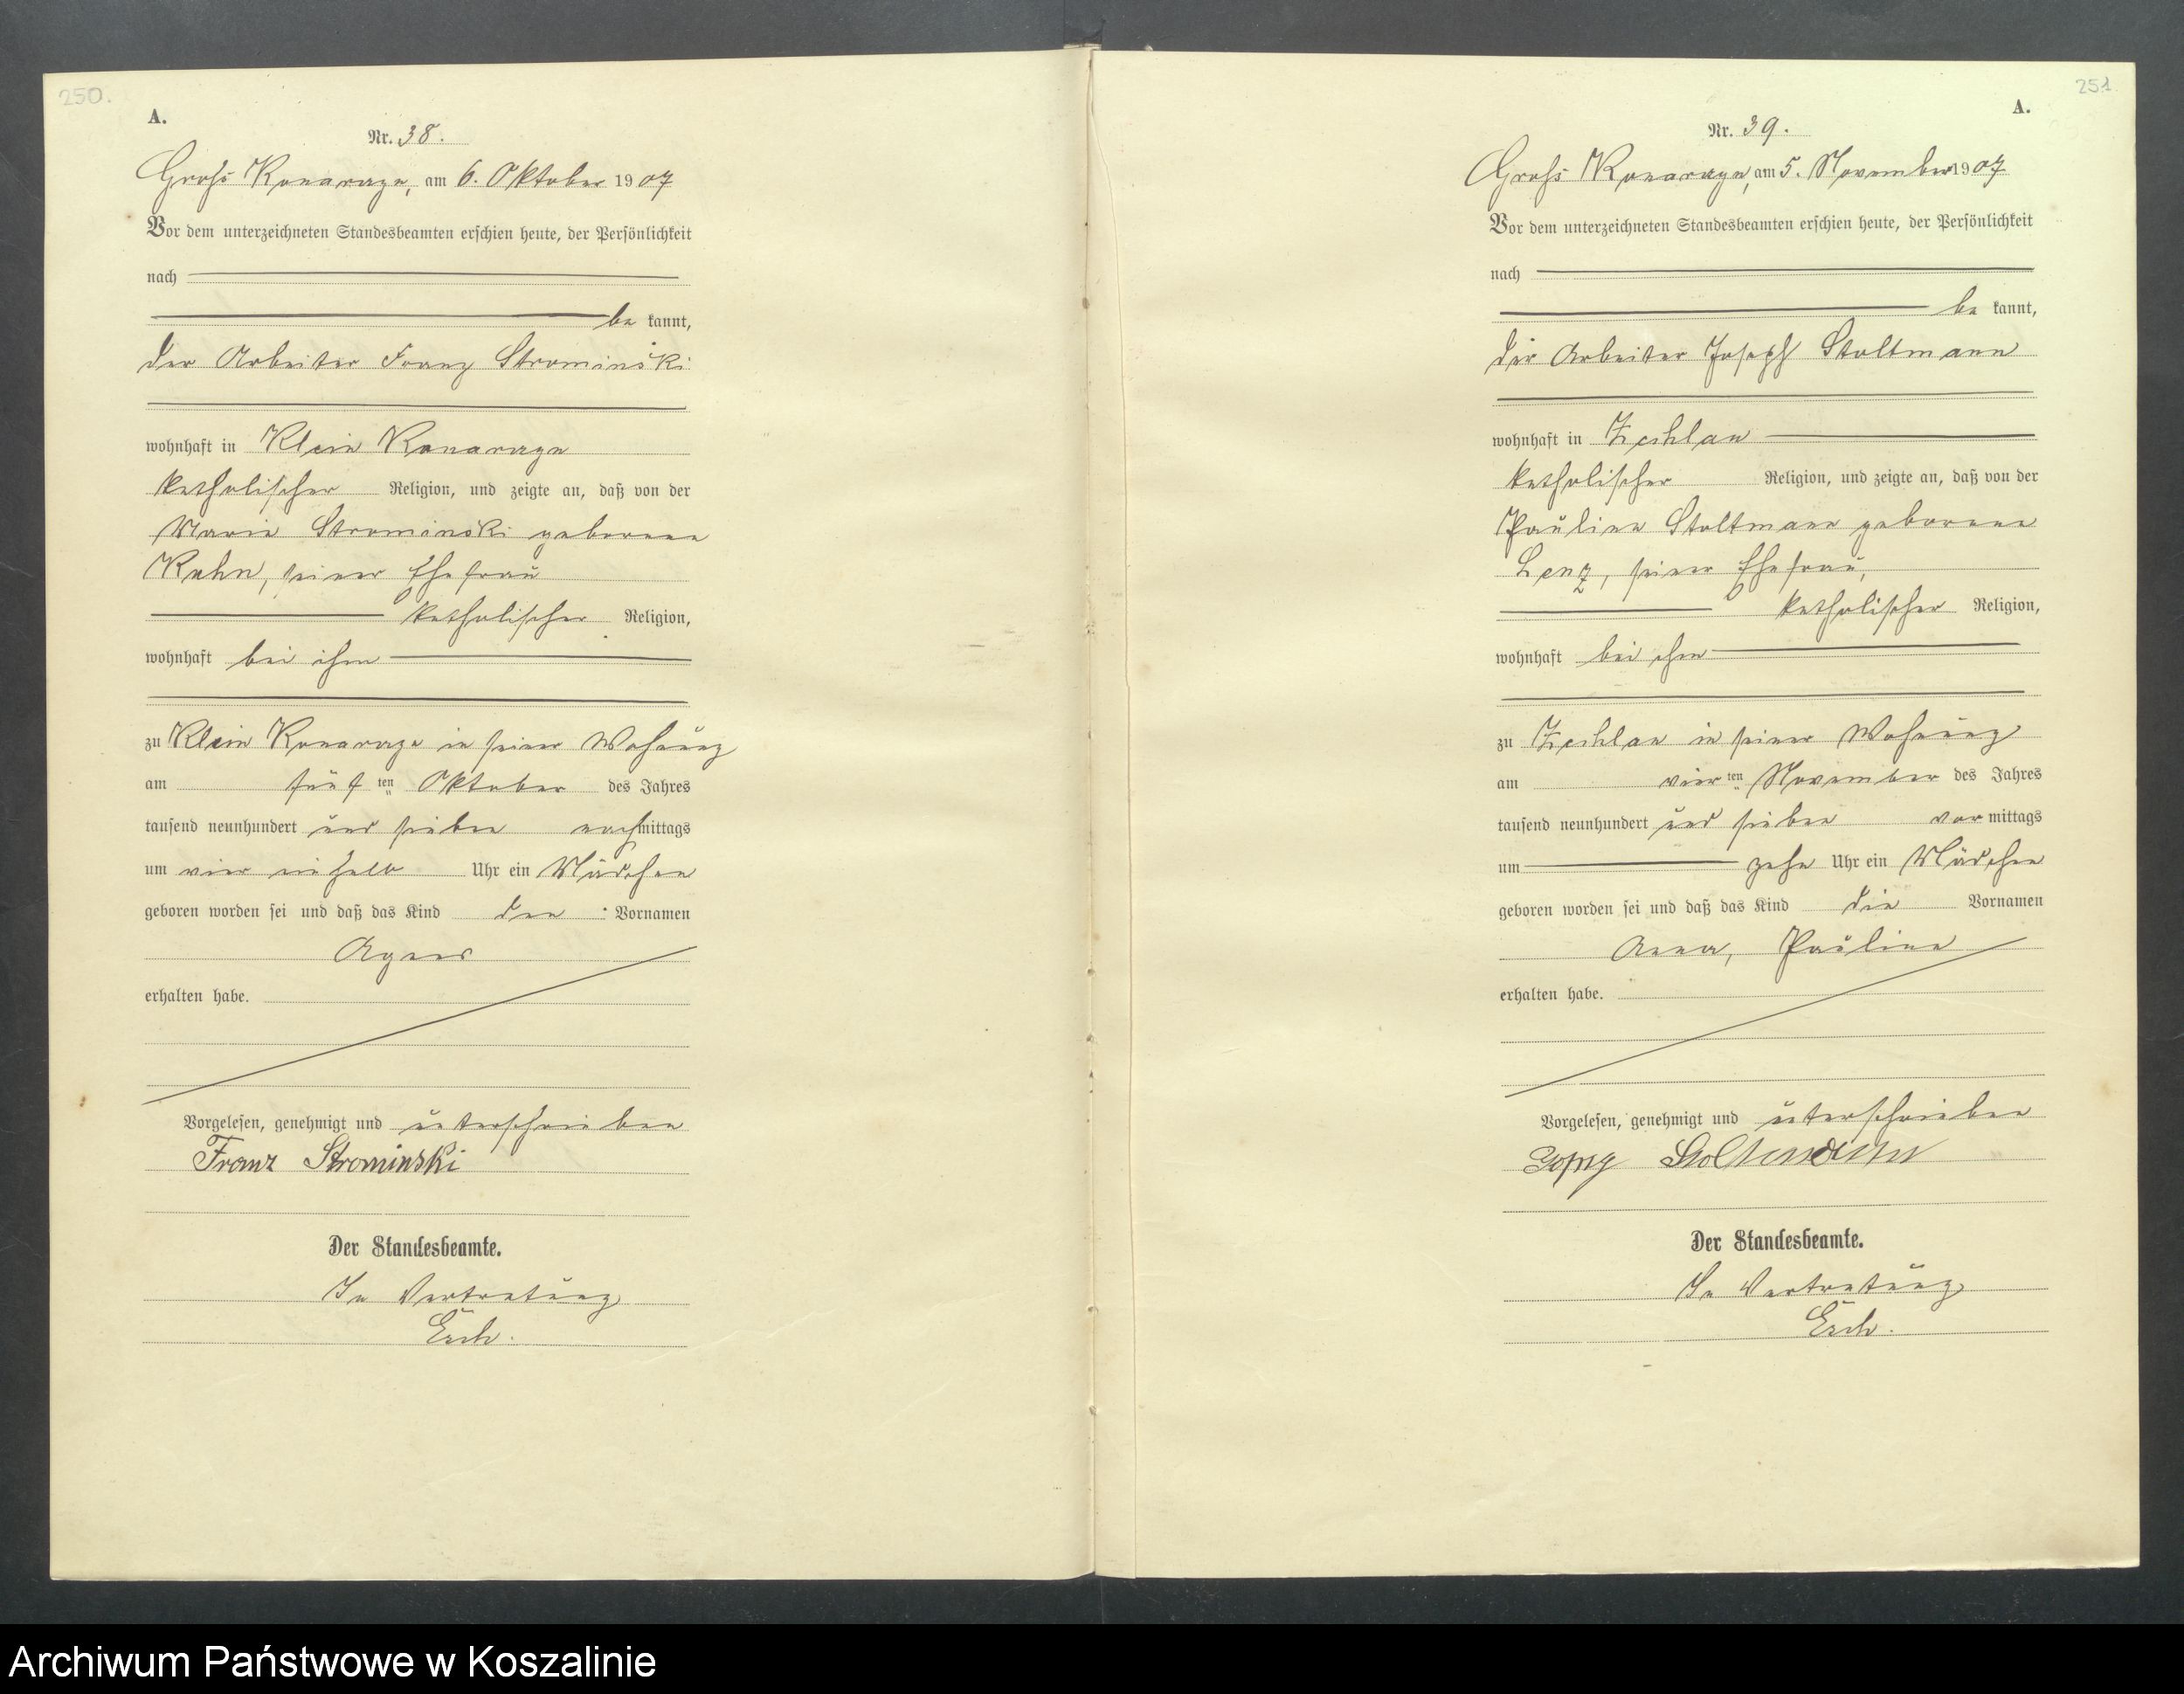 250.
A.
Nr. 38.
Groß Konarzyn, am 6. Oktober 1907
Vor dem unterzeichneten Standesbeamten erschien heute, der Persönlichkeit
nach
be kannt,
der Arbeiter Franz Strominski
wohnhaft in Klein Konarzyn
katholischer Religion, und zeigte an, daß von der
Marie Strominski geborene
Kuhn, seiner Ehefrau
katholischer Religion,
wohnhaft bei ihm
zu Klein Konarzyn in seiner Wohnung
am fünften Oktober des Jahres
tausend neunhundert und sieben nachmittags
um vier einhalb Uhr ein Mädchen
geboren worden sei und daß das Kind den Vornamen
Agnes
erhalten habe.
Vorgelesen, genehmigt und unterschrieben
Franz Strominski
Der Standesbeamte.
In Vertretung
251
A.
Nr. 39.
Groß Konarzyn, am 5. November 1907
Vor dem unterzeichneten Standesbeamten erschien heute, der Persönlichkeit
nach
be kannt,
der Arbeiter Joseph Stoltmann
wohnhaft in Zechlau
katholischer Religion, und zeigte an, daß von der
Pauline Stoltmann geborene
Lenz, seiner Ehefrau,
katholischer Religion,
wohnhaft bei ihm
zu Zechlau in seiner Wohnung
am vierten November des Jahres
tausend neunhundert und sieben vormittags
um zehn Uhr ein Mädchen
geboren worden sei und daß das Kind die Vornamen
Anna, Pauline
erhalten habe.
Vorgelesen, genehmigt und unterschrieben
Stoltmann
Der Standesbeamte.
In Vertretung
Archiwum Państwowe w Koszalinie